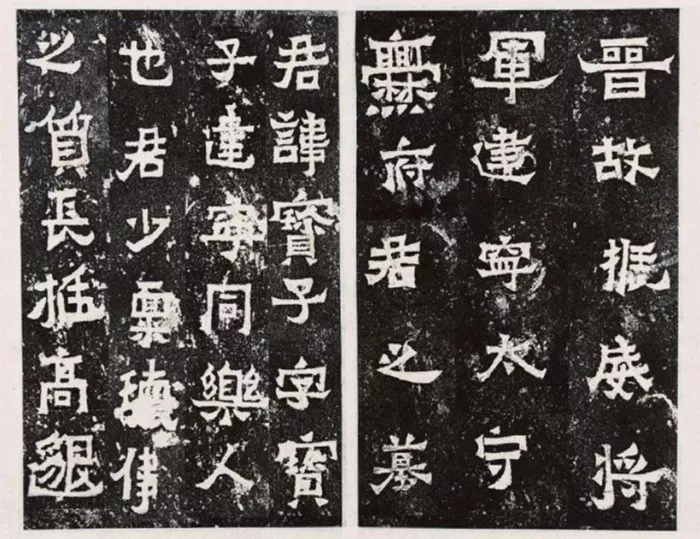 晉故振威将
軍建寧太守
爨府君之墓
君諱寶子字寶
子建寧同樂人
也君少稟瓌偉
之質長挺高邈